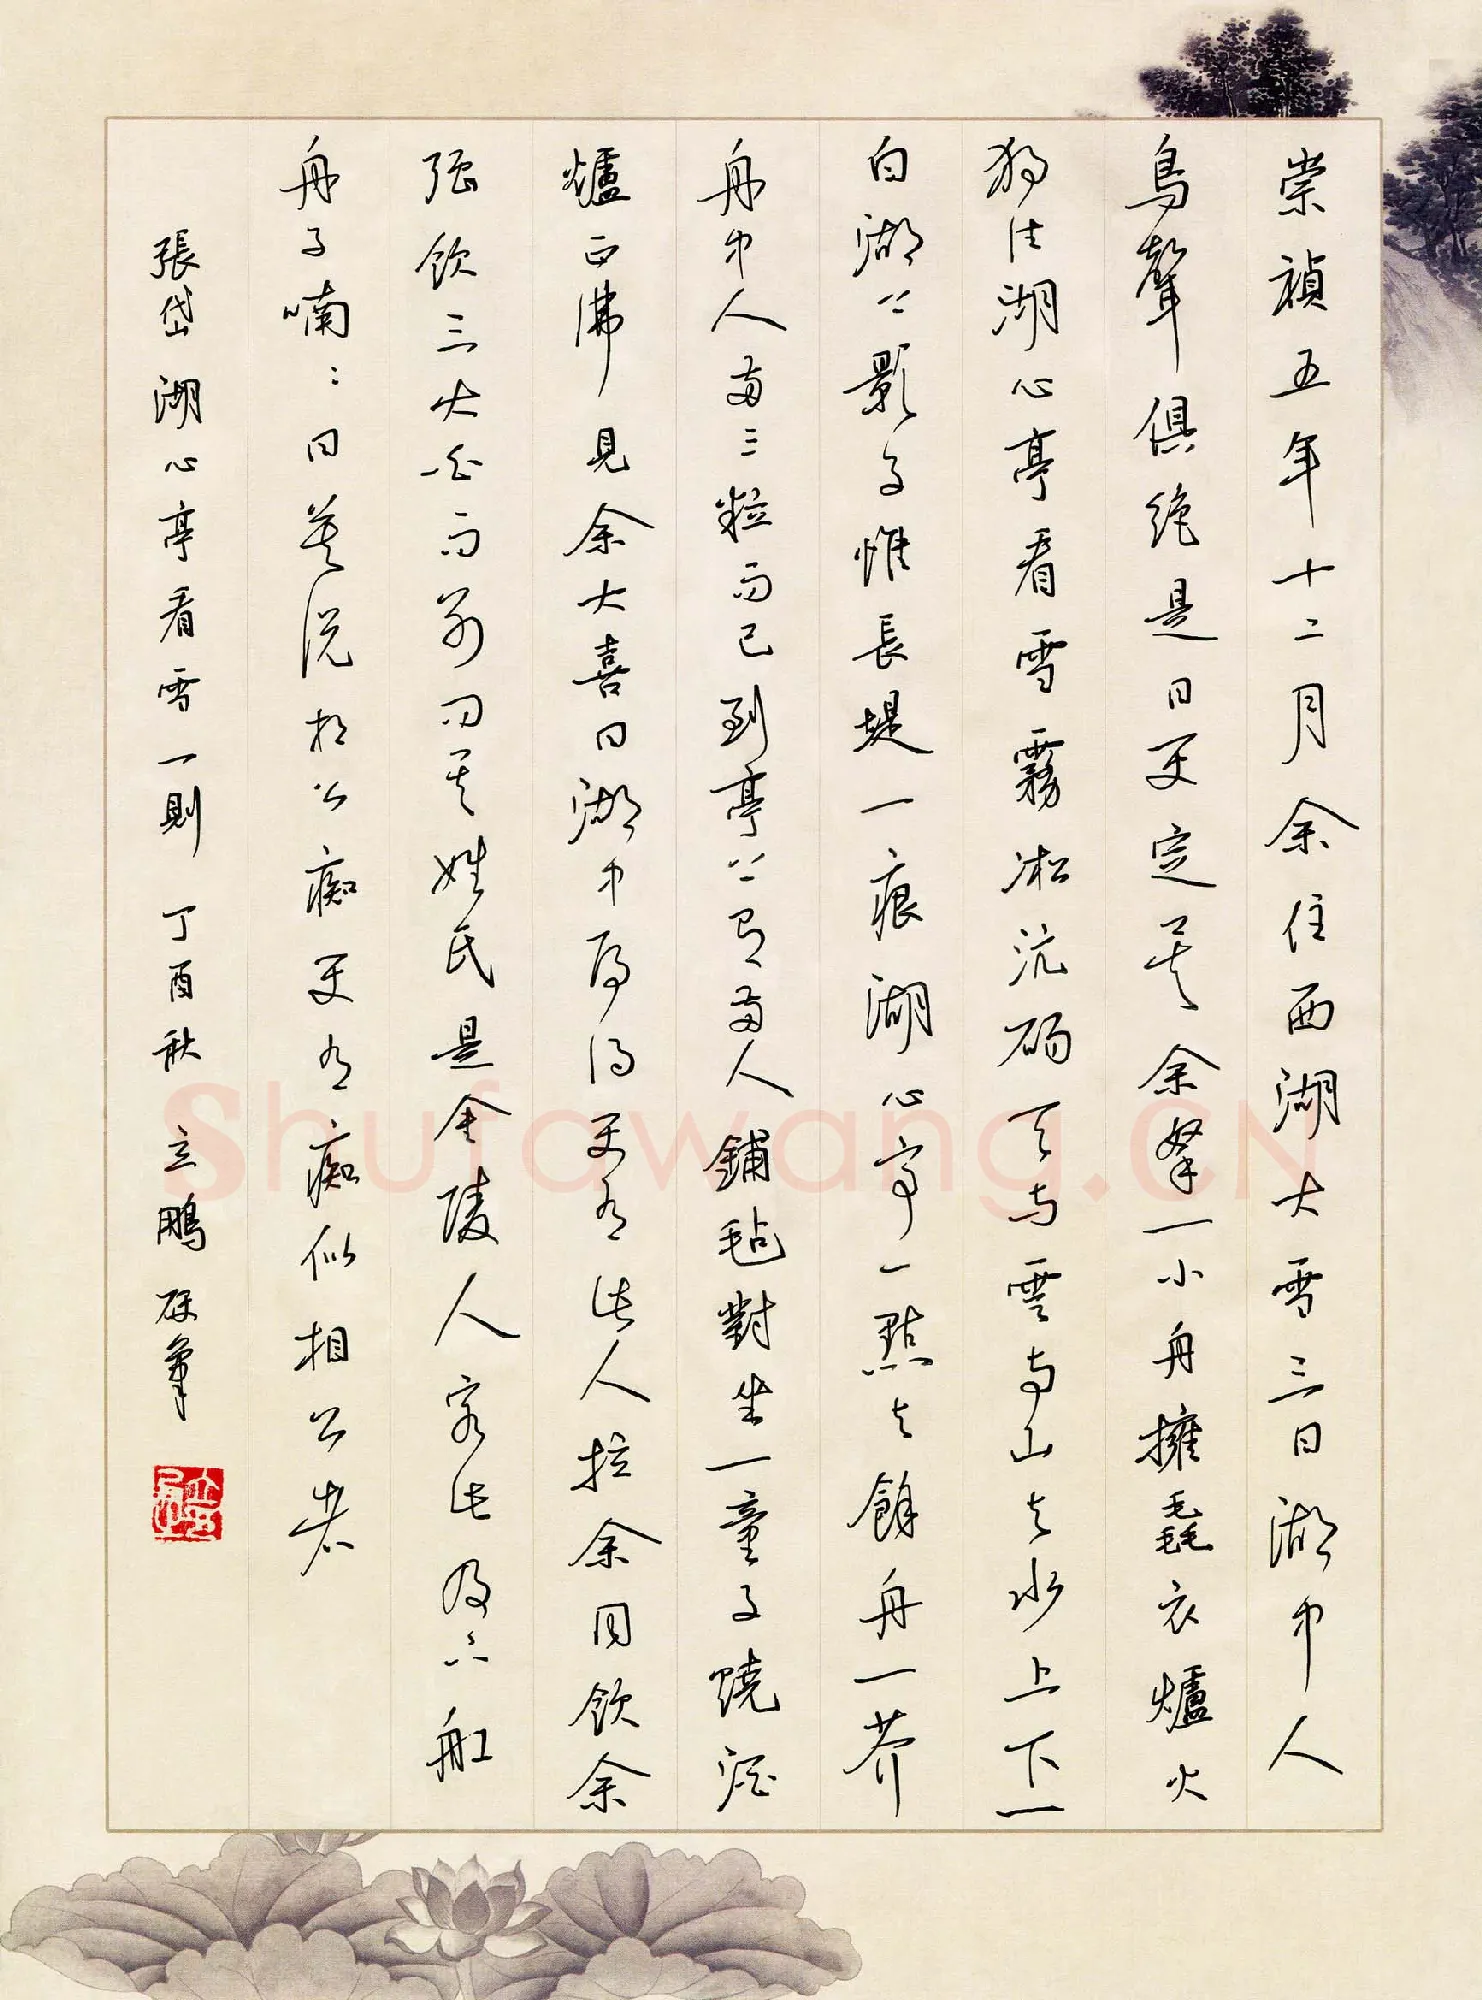 崇禎五年十二月余住西湖大雪三日湖中人
鳥聲俱絕是日更定矣余拏一小舟擁毳衣爐火
獨往湖心亭看雪霧凇沆碭天與雲與山與水上下一
白湖上影子惟長堤一痕湖心亭一點與餘舟一芥
舟中人兩三粒而已到亭上有兩人鋪毡對坐一童子燒酒
爐正沸見余大喜曰湖中焉得更有此人拉余同飲余
强飲三大白而別問其姓氏是金陵人客此及下舡
舟子喃〻曰莫說相公痴更有痴似相公者
張岱湖心亭看雪一則 丁酉秋 立鵬 硬筆
Shufawang.CN